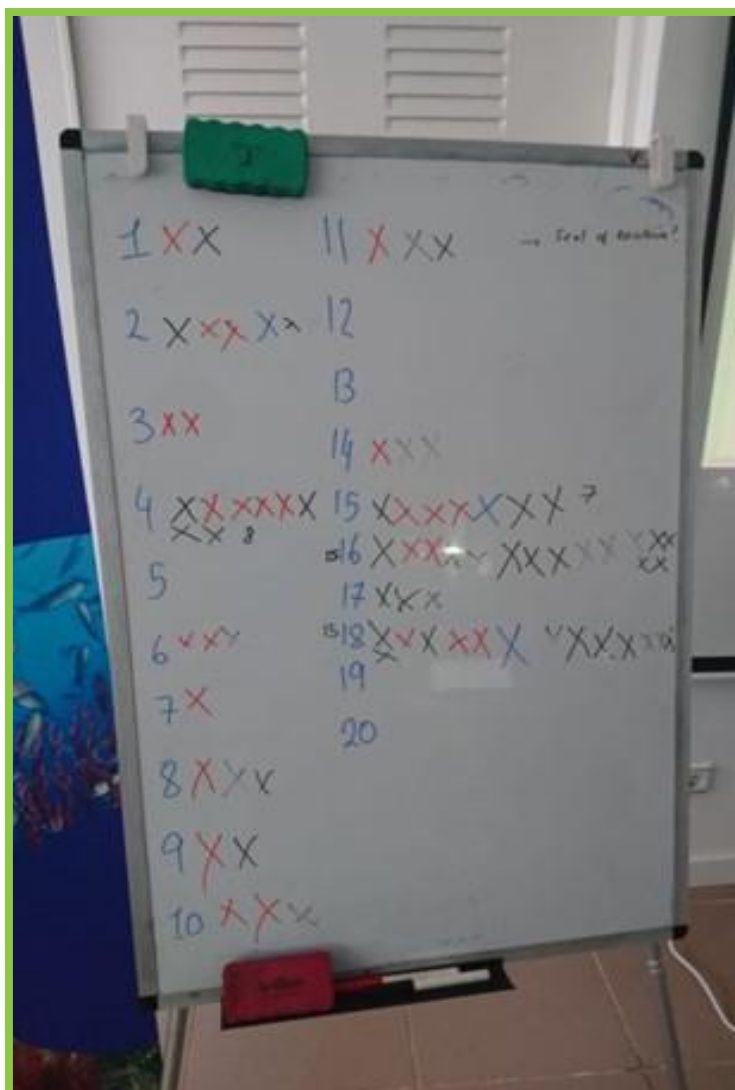 1 X X
2 X X X X X
3 X X
4 X X X X X X X
X X 8
5
6 X X X
7 X
8 X X X
9 X X
10 X X X
11 X X X → Seal of
12
13
14 X X X
15 X X X X X X X 7
15 16 X X X X X X X X X X X X X X X
17 X X X
15 18 X X X X X X X X X X X X X
X
19
20